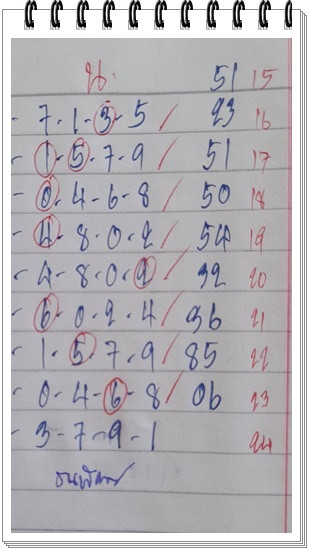 น. 51 15
- 7-1-3-5 / 23 16
- 1-5-7-9 / 51 17
- 0-4-6-8 / 50 18
- 4-8-0-2 / 54 19
- 4-8-0-2 / 32 20
- 6-0-2-4 / 36 21
- 1-5-7-9 / 85 22
- 0-4-6-8 / 06 23
- 3-7-9-1 24